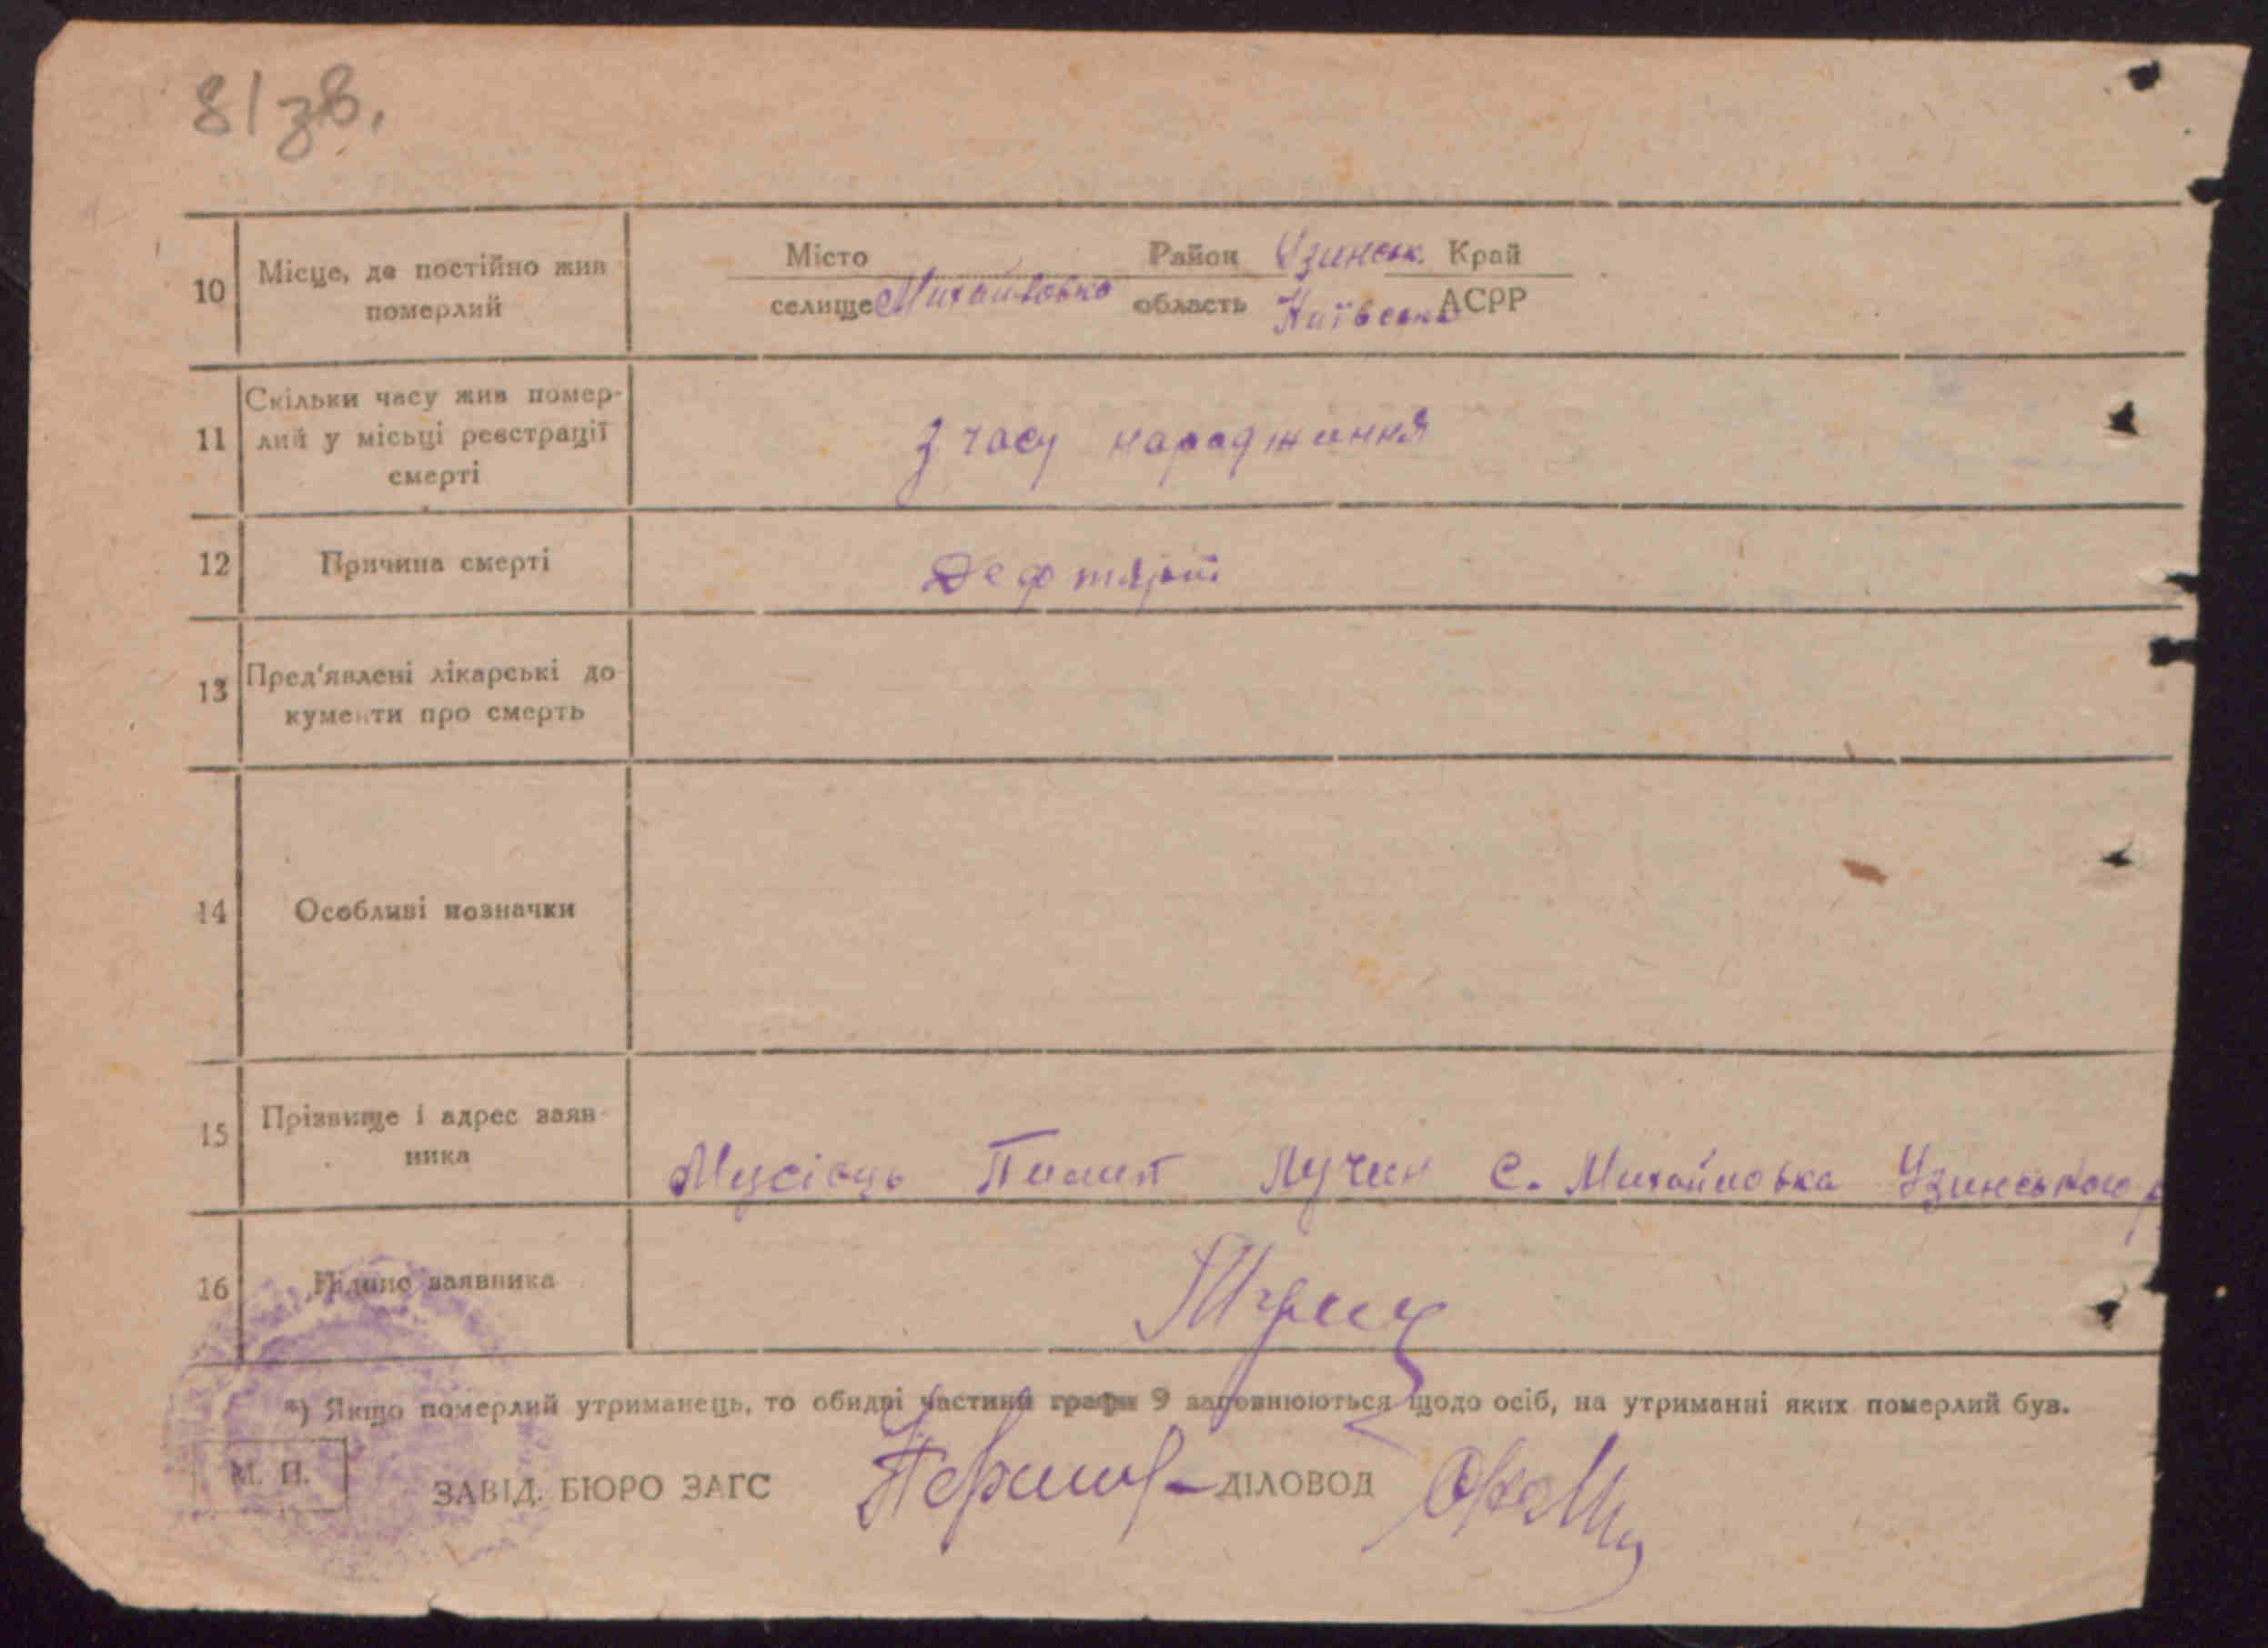 81зв.
10 Місце, де постійно жив померлий
Місто Район Узинськ. Край
селище Михайловка область Київська АСРР
11 Скільки часу жив помер-
лий у місьці реєстрації
смерті
З часу народжиння
12 Причина смерті
Дефтирит
13 Пред'явлені лікарські до
кументи про смерть
14 Особливі позначки
15 Прізвище і адрес заяв-
ника
Мусієць Пилип Лучин С. Михайловка Узинського р
16 Підпис заявника
*) Якщо померлий утриманець, то обидві частини графи 9 заповнюються щодо осіб, на утриманні яких померлий був.
М. П.
ЗАВІД. БЮРО ЗАГС ДІЛОВОД